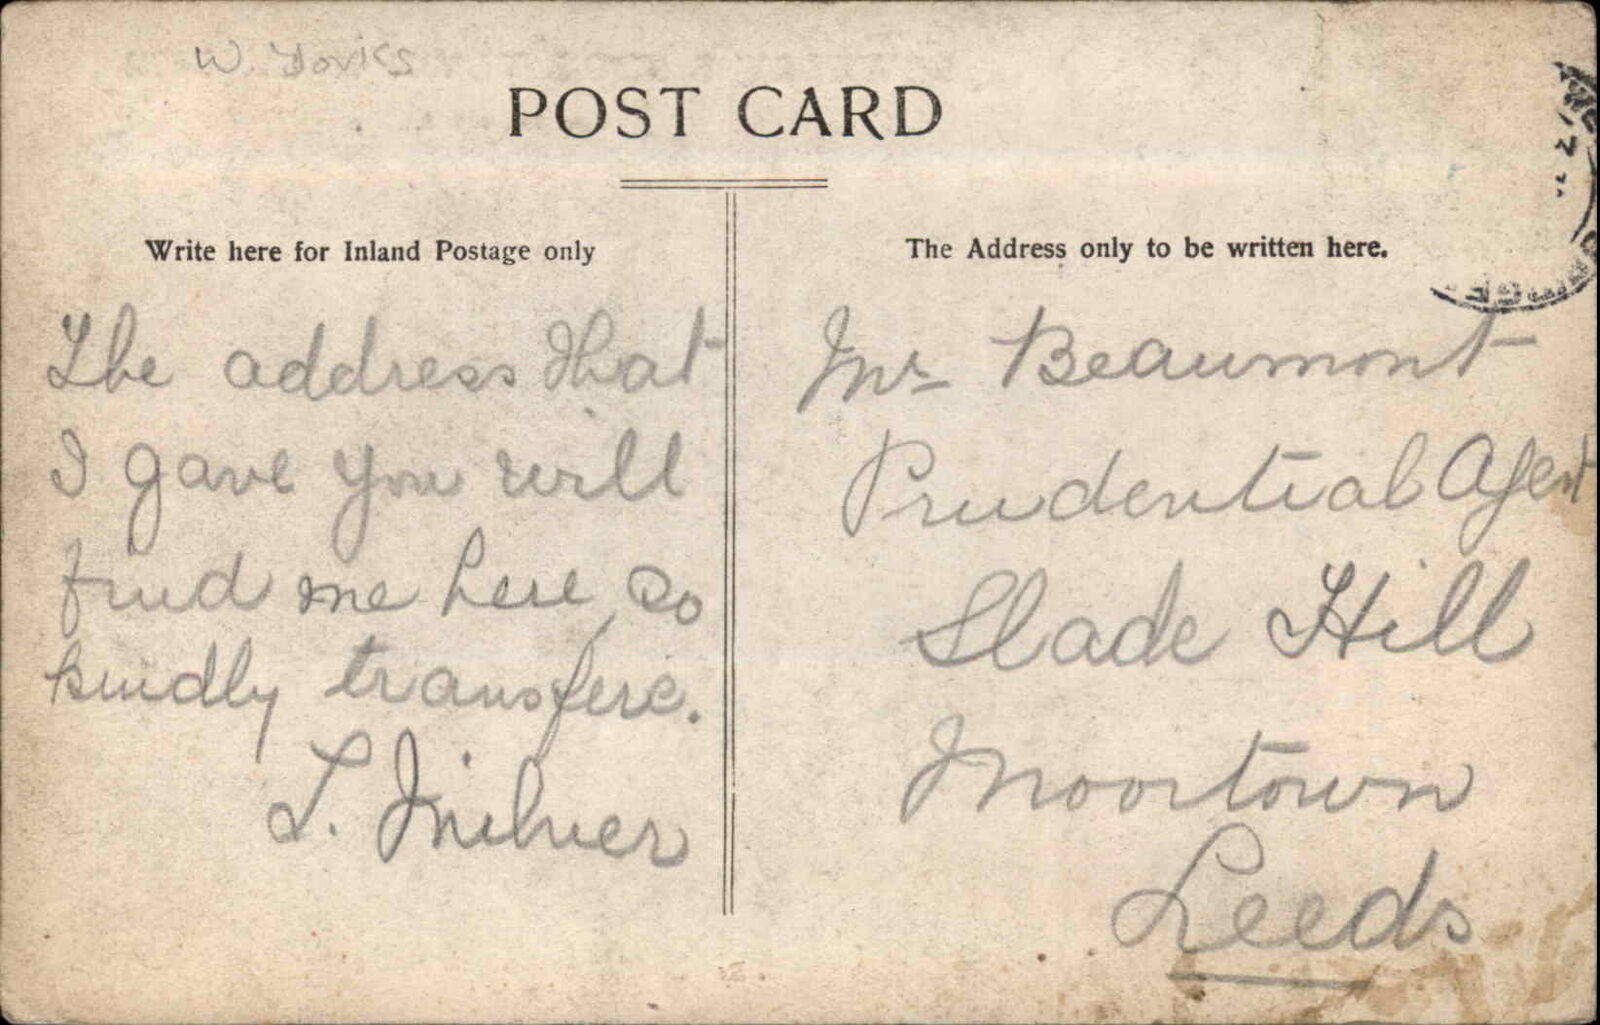 W. Yorks
POST CARD
Write here for Inland Postage only
The address that
I gave you will
find me here so
kindly transfere.
L. Milner
The Address only to be written here.
Mr Beaumont
Prudential Agent
Slade Hill
Moortown
Leeds